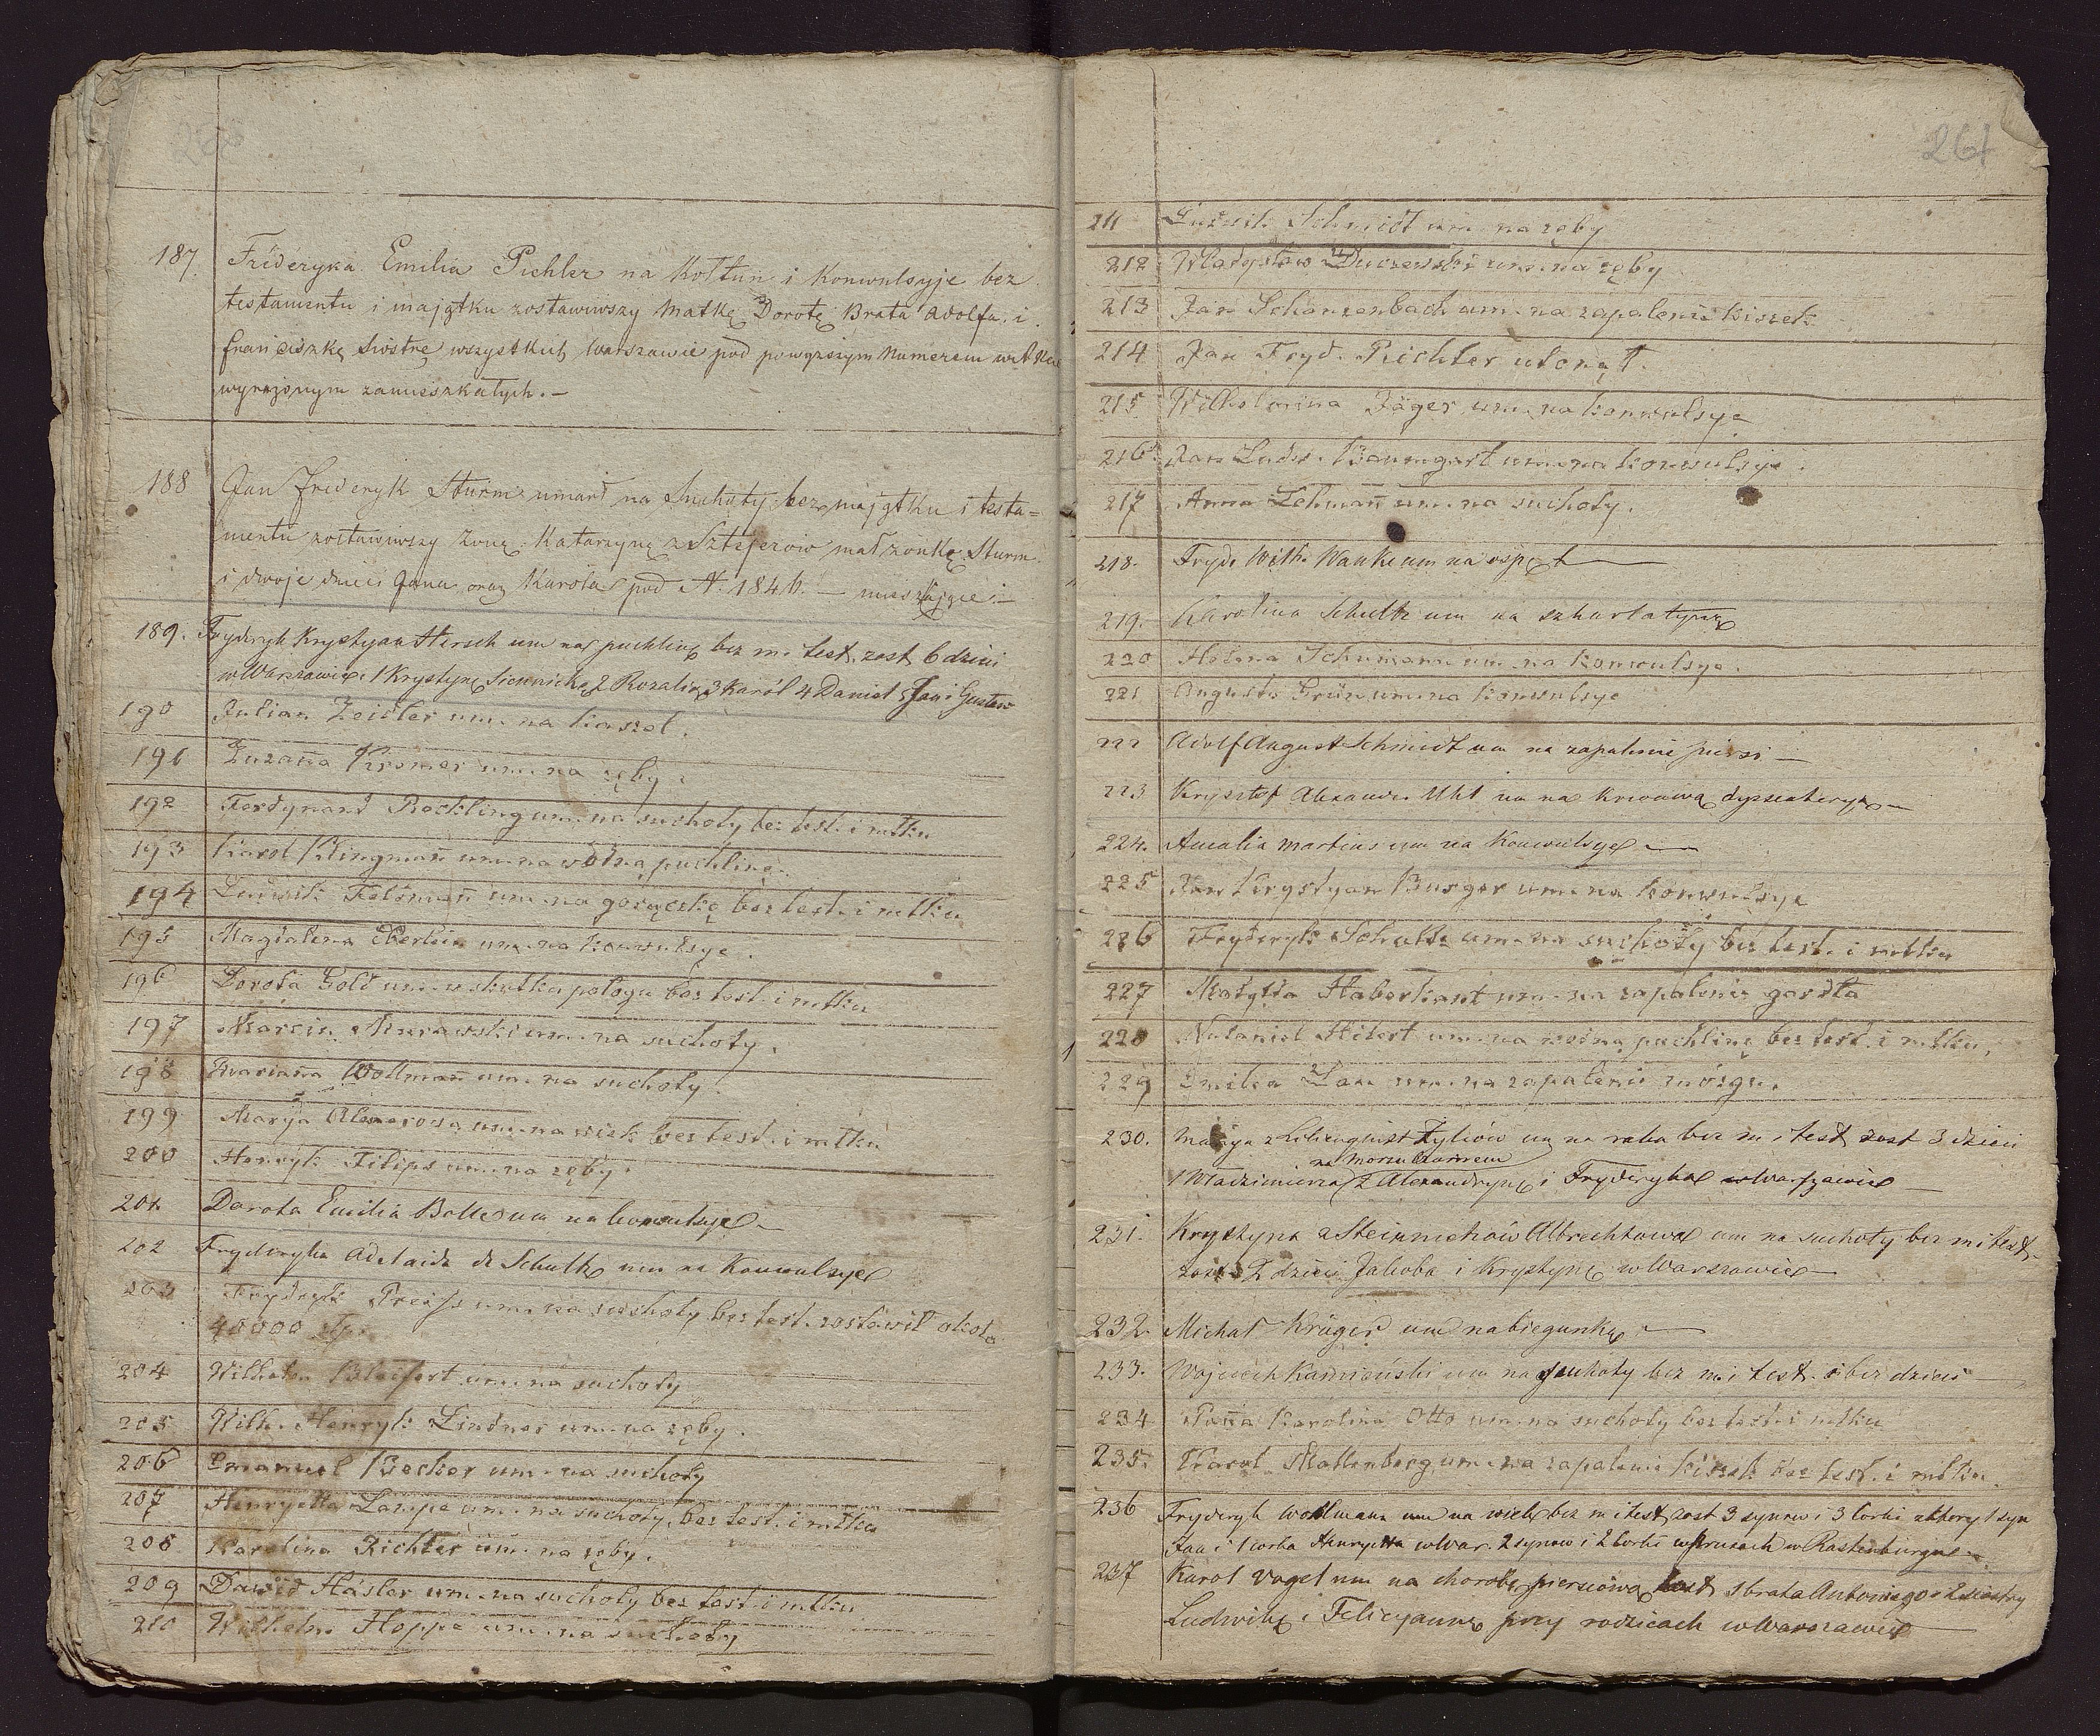 187. Frideryka Emilia Pichler na Kołtun i Konwulsyje bez
testamentu i majątku zostawiwszy Matkę Dorotę Brata Adolfa i
franciszkę Siostrę wszystkich w Warszawie pod powyższym Numerem
wyrażonym zamieszkałych.—
188 Jan Frederyk Sturm umarł na Suchoty bez majątku i testa=
mentu zostawiwszy żonę Katarzynę z małżonkę Sturm
i dwoje dzieci Jana oraz Karola pod N. 1846. — mieszkające.—
189. Fryderyk Krystyan Hersch um na puchlinę bez m. i test. zost 6 dzieci
w Warszawie. 1 Krystynę 2 Rozalię 3 Karól 4 Daniel 5 Jan i Gustaw
190 Julian Zeidler um. na kaszel.
191 Zuzańa Kromer um. na zęby.
192 Ferdynand Rockling um. na suchoty bez test. i mtku
193 Karol Klingmań um. na wodną puchlinę.
194 Ludwik Feldmań um. na gorączkę bez test. i mtku
195 Magdalena Eberlein um. na konwulsye.
196 Dorota Gold um. w skutku połogu bez test. i mtku
197 Marcin Murawski um. na suchoty.
198 Maryańa Wollmań um. na suchoty.
199 Marya um. na wiek bez test. i mtku
200 Henryk Filips um. na zęby.
201. Dorota Emilia Bolle um na konwulsye—
202 Fryderyka Adelaida de Schultz um na Konwulsye
203 Fryderyk Preiss um. na suchoty bez test. zostawił około
40000 złp.
204 Wilhelm Bleifert um. na suchoty
205 Wilh. Henryk Lindner um. na zęby.
206 Emanuel Becker um. na suchoty
207 Henryetta Lampe um. na suchoty bez test. i mtku
208 Karolina Richter um. na zęby.
209 Dawid Häsler um. na suchoty bez test. i mtku
210 Wilhelm Hoppe um. na suchoty
261
211 Ludwik Schmidt um. na zęby
212 Władysław um. na zęby
213 Jan Schanzenbach um. na zapalenie kiszek
214 Jan Fryd. Richter utonął.
215 Wilhelmina Jäger um. na konwulsye
216. Jan Ludw. Baumgart um. na konwulsye.
217 Anna Lehmań um. na suchoty.
218. Fryd. Wilh. Wanke um na ospę
219. Karolina Schultz um na szkarlatynę
220 Helena Schumann um. na konwulsye.
221 Augusta Grün um. na konwulsye
222 Adolf August Schmidt um na zapalenie piersi —
223 Krysztof Alexander Uhl um na krwawą dyssenteryę—
224. Amalia Martins um na konwulsye —
225 Jan Krystyan Burger um. na konwulsye
226 Fryderyk Schultz um. na suchoty bez test. i mtku
227 Matylda Haberkant um. na zapalenie gardła
228 Nataniel Hilert um. na wodną puchlinę bez test. i mtku,
229 Emilia Lau um. na zapalenie mózgu.
230. Marya z um na raka bez m i test zost 3 dzieci
na Morzu Czarnem
1 Władzimierza 2 Alexandrynę i Fryderyka w Warszawie —
231. Krystyna z Albrechtowa um na suchoty bez m i test.
zost 2 dzieci Jakoba i Krystynę w Warszawie—
232. Michał Krüger um na biegunkę —
233. Wojciech Kamiński um na suchoty bez m. i test. i bez dzieci
234 Karolina Otto um. na suchoty bez test. i mtku
235. Karol Mollenberg um. na zapalenie kiszek bez test. i mtku.
236 Fryderyk Wollmann um na wiek bez m i test zost 3 synów i 3 corki z ktorych 1 syn
Jan i 1 corka Henryetta w War. 2 synow i 2 corki w Prusach w Rastenburgu—
237 Karol Vogel um na chorobę piersiową zost 1 brata Antoniego 2 siostry
Ludwikę i Felicyannę przy rodzicach w Warszawie—